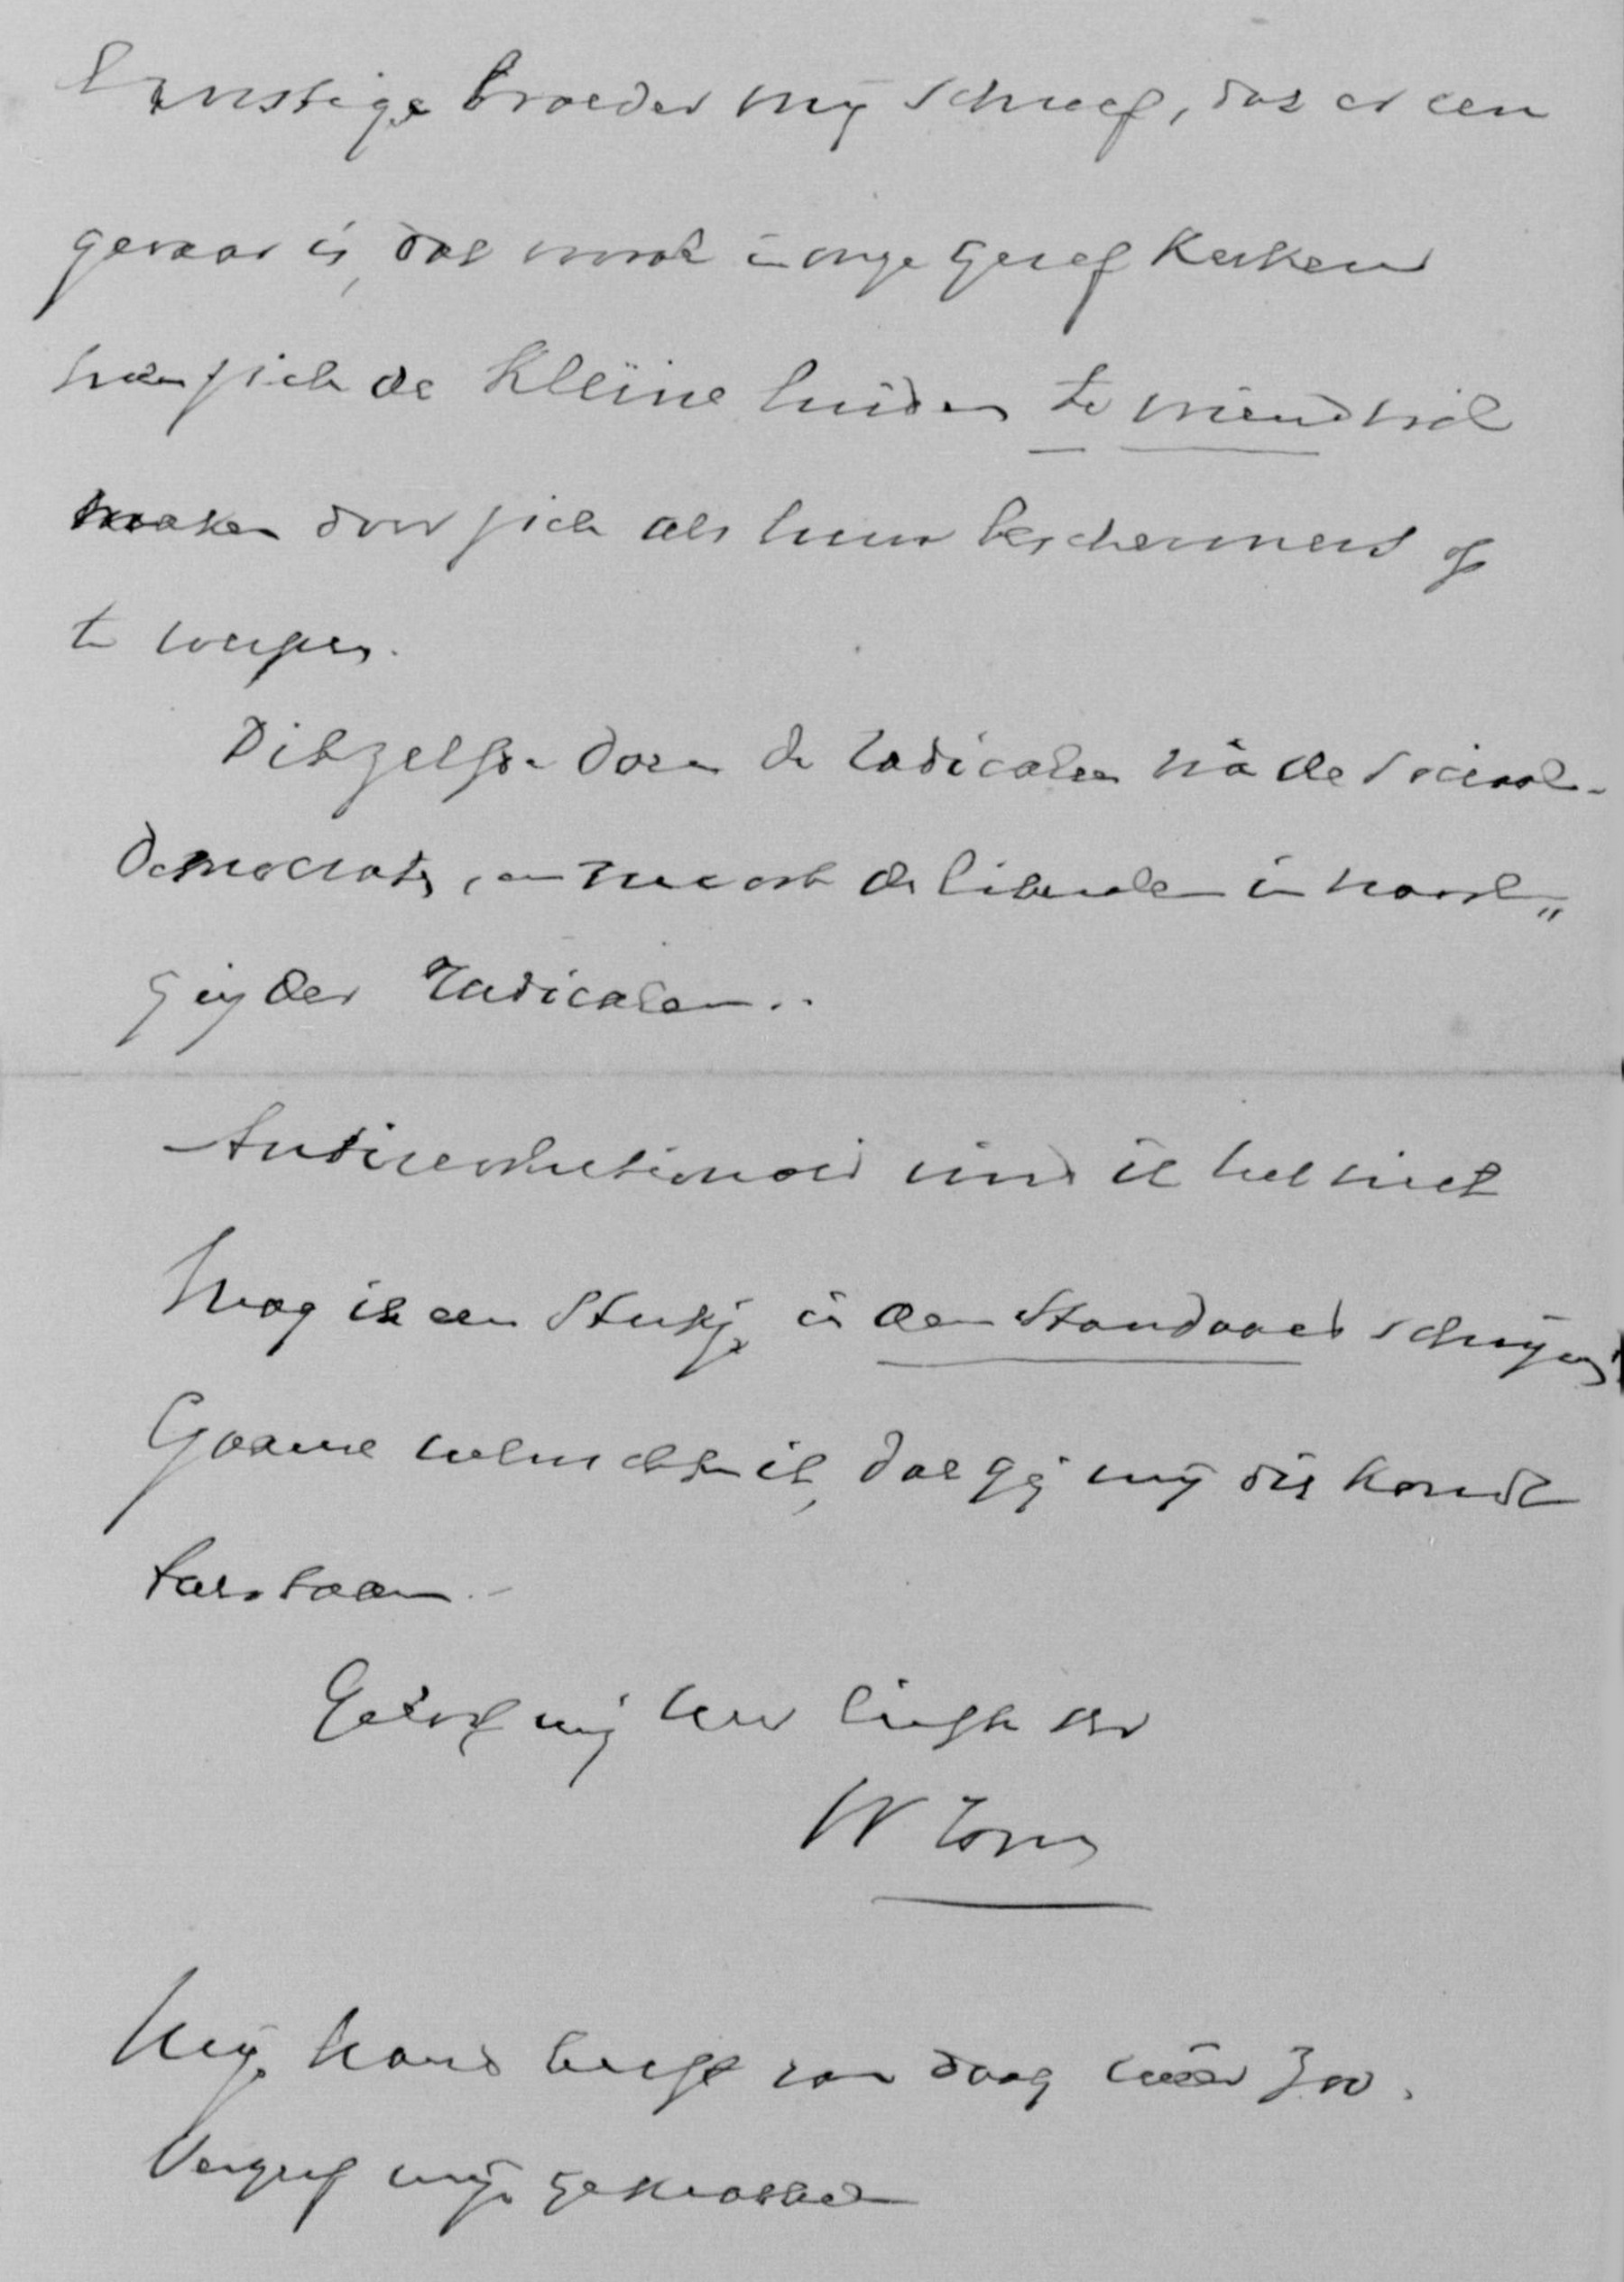 Ernstige broeder mij schreef, dat er een
gevaar is, dat men in onze Geref Kerken
zich de Kleine luiden te vriend wil
maken door zich als hun beschermers op
te werpen.
Ditzelfde doen de radicalen via de sociaal-
democraten, en nu ook de liberalen in navol„
ging der Radicalen..
Antirevolutionair vind ik het niet
Mag ik een Stukje in den Standaard schrijven?
Gaarne wenschte ik, dat gij mij dit kondt
toestaan.-
Geloof mij uw liefh br
W
Mijn hand beeft van daag weer zoo.
Vergeef mijn gekrabbel